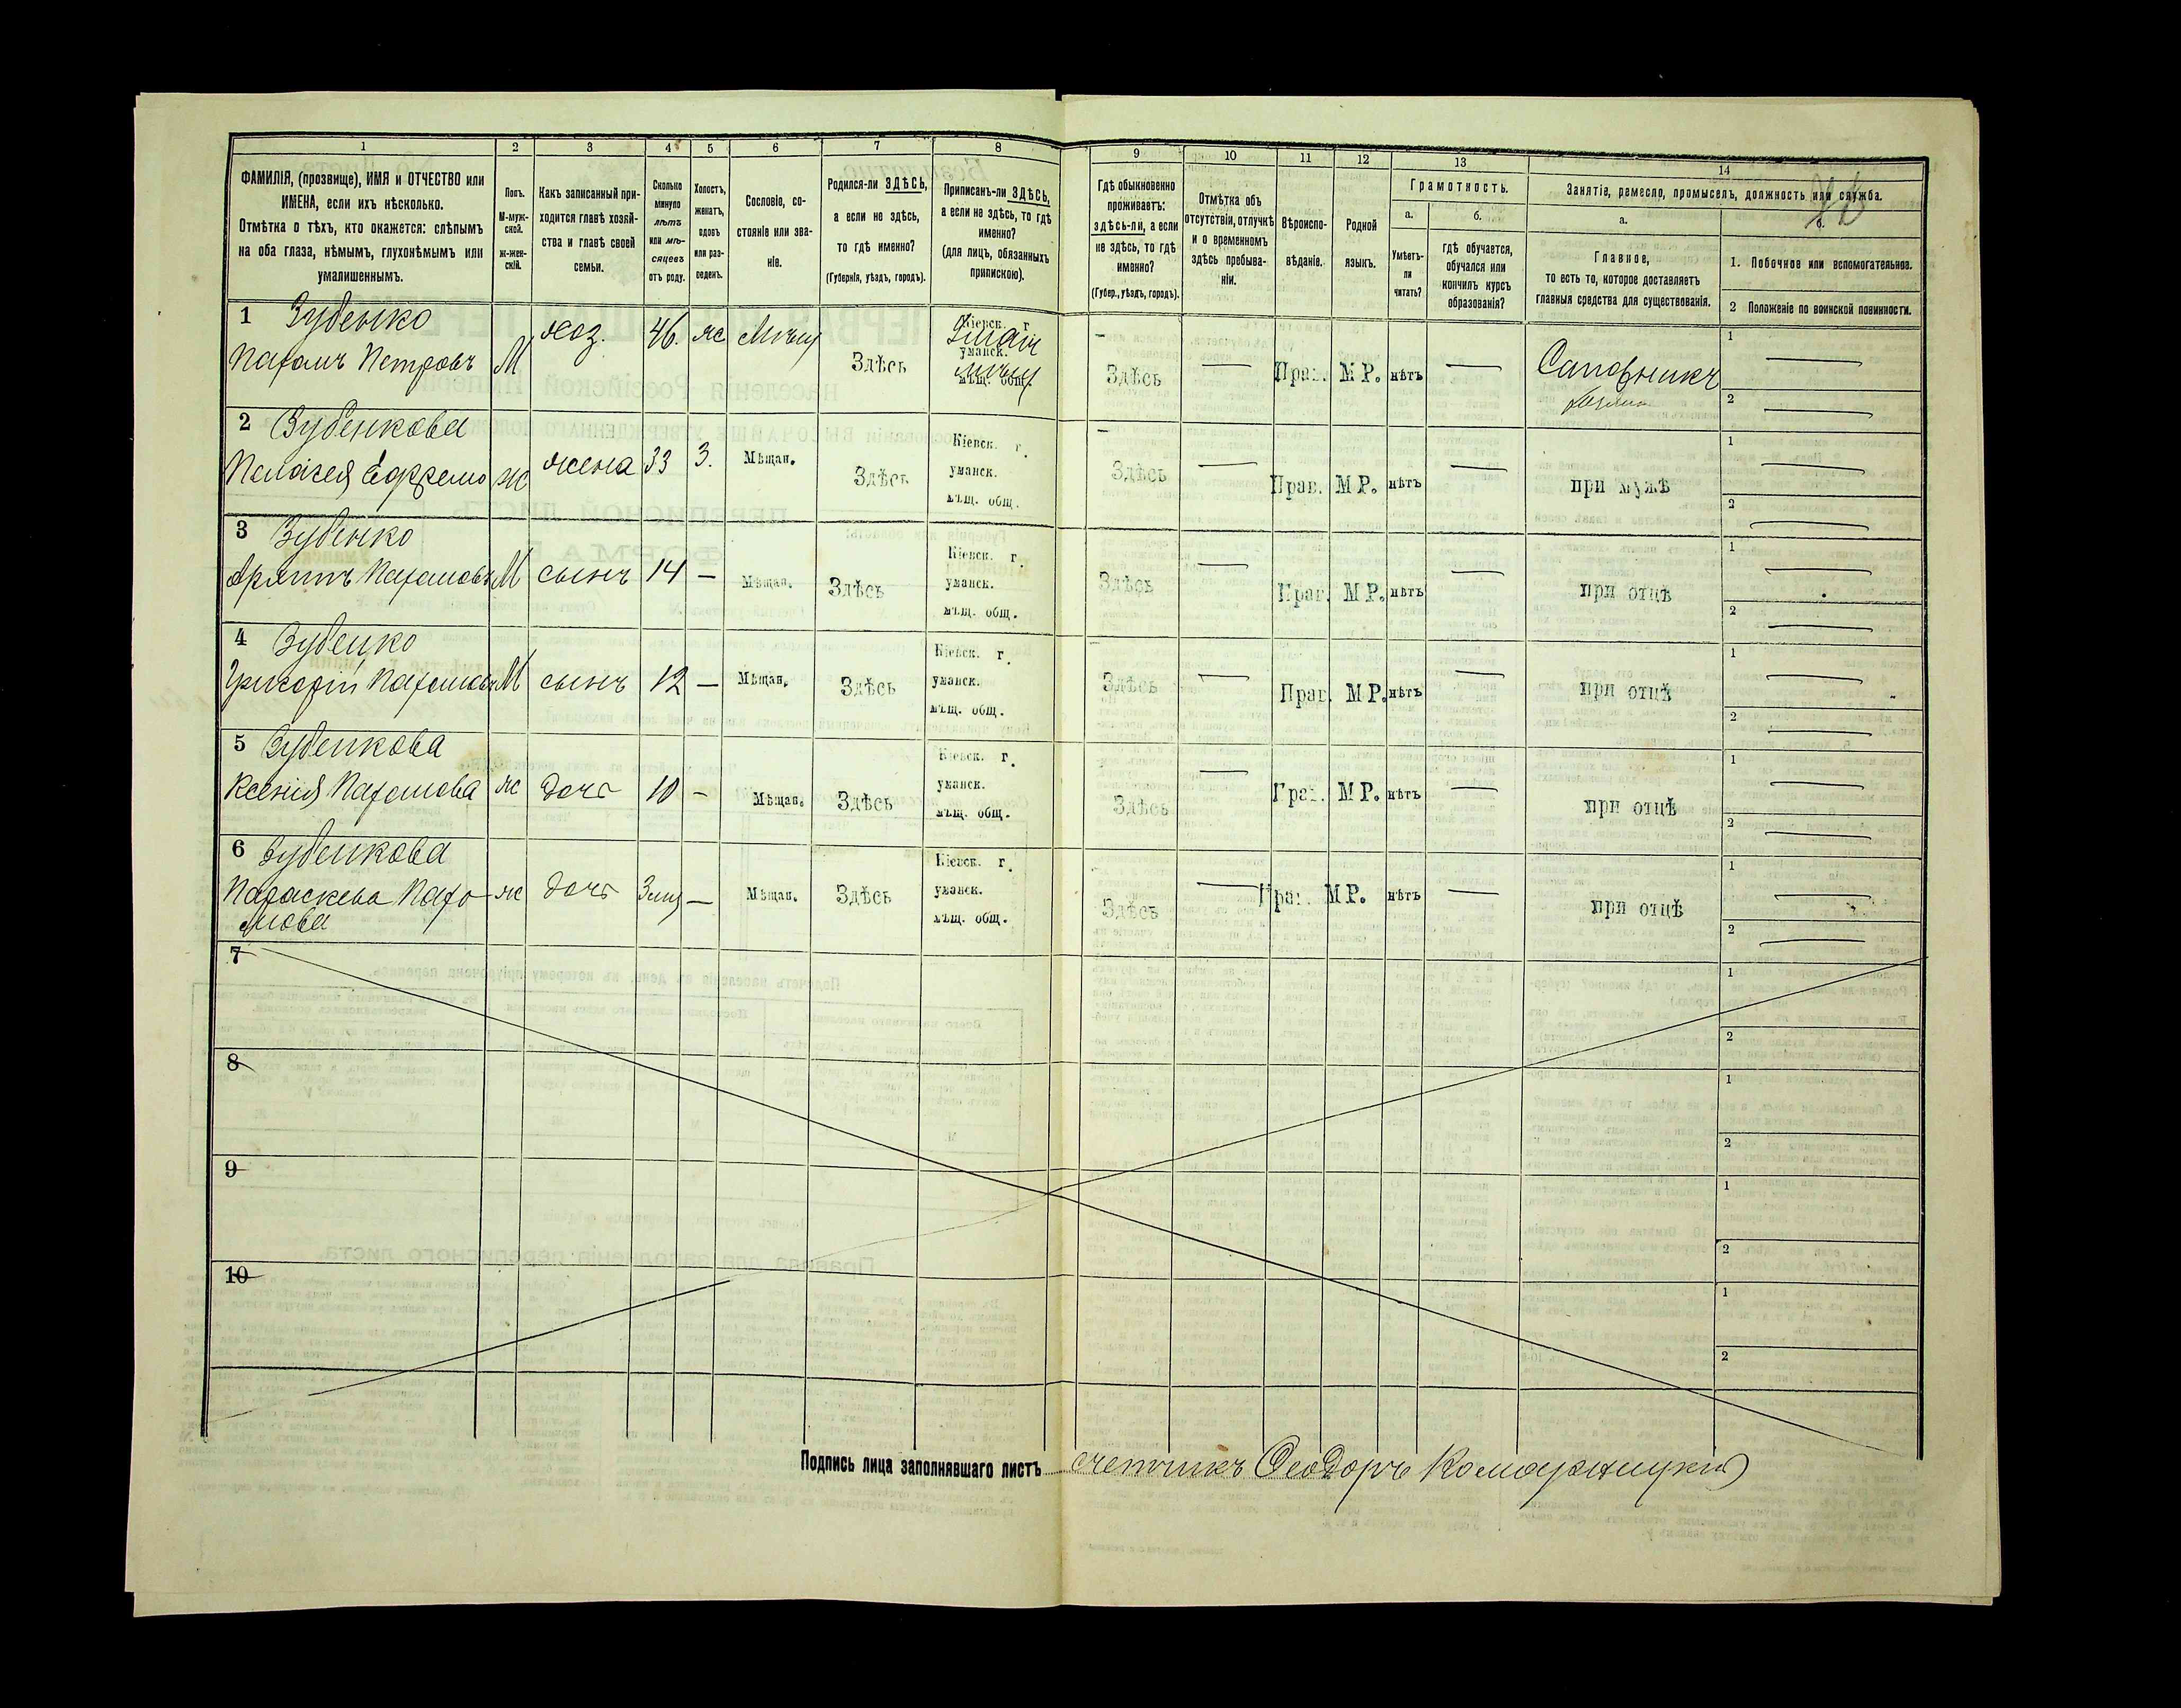 1 2 3 4 5 6 7 8 9 10 11 12 13 14
ФАМИЛІЯ, (прозвище), ИМЯ и ОТЧЕСТВО или
ИМЕНА, если ихъ нѣсколько.
Отмѣтка о тѣхъ, кто окажется: слѣпымъ
на оба глаза, нѣмымъ, глухонѣмымъ или
умалишеннымъ.
Полъ.
М-муж-
ской.
ж-жен-
скій.
Какъ записанный при-
ходится главѣ хозяй-
ства и главѣ своей
семьи.
Сколько
минуло
лѣтъ
или мѣ-
сяцевъ
отъ роду.
Холостъ,
женатъ,
вдовъ
или раз-
веденъ.
Сословіе, со-
стояніе или зва-
ніе.
Родился-ли ЗДѢСЬ,
а если не здѣсь,
то гдѣ именно?
(Губернія, уѣздъ, городъ).
Приписанъ-ли ЗДѢСЬ,
а если не здѣсь, то гдѣ
именно?
(для лицъ, обязанныхъ
припискою).
Гдѣ обыкновенно
проживаетъ:
здѣсь-ли, а если
не здѣсь, то гдѣ
именно?
(Губер., уѣздъ, городъ).
Отмѣтка объ
отсутствіи, отлучкѣ
и о временномъ
здѣсь пребыва-
ніи.
Вѣроиспо-
вѣданіе.
Родной
языкъ.
Грамотность.
а.
Умѣетъ-
ли
читать?
б.
гдѣ обучается,
обучался или
кончилъ курсъ
образованія?
Занятіе, ремесло, промыселъ, должность или служба.
а.
Главное,
то есть то, которое доставляетъ
главныя средства для существованія.
б.
1. Побочное или вспомогательное.
2 Положеніе по воинской повинности.
1 Зубенко
Пахомъ Петровъ М хоз. 46. ж Мѣщ Здѣсь
Кіевск. г
уманск.
мѣщ. общ.
– Здѣсь — Прав. М Р. нѣтъ — Сапожникъ
1 —
2 —
2 Зубенкова
Пелагея Ефремо ж жена 33 З. Мѣщан. Здѣсь
Кіевск. г.
уманск.
мѣщ. общ.
– Здѣсь — Прав. М Р. нѣтъ — при мужѣ
1 —
2 —
3 Зубенко
Пахомовъ М сынъ 14 – Мѣщан. Здѣсь
Кіевск. г.
уманск.
мѣщ. общ.
Здѣсь — Прав. М Р. нѣтъ — при отцѣ
1 —
2 —
4 Зубенко
Григорій Пахомовъ М сынъ 12 – Мѣщан. Здѣсь
Кіевск. г.
уманск.
мѣщ. общ.
Здѣсь — Прав. М Р. нѣтъ — при отцѣ
1 —
2 —
5 Зубенкова
Ксенія Пахомова ж дочь 10 – Мѣщан. Здѣсь
Кіевск. г.
уманск.
мѣщ. общ.
Здѣсь — Прав. М Р. нѣтъ — при отцѣ
1 —
2 —
6 Зубенкова
Параскева Пахо- ж дочь 3 мц – Мѣщан. Здѣсь
мова
Кіевск. г.
уманск.
мѣщ. общ.
Здѣсь — Прав. М Р. нѣтъ — при отцѣ
1 —
2 —
7
1
2
8
1
2
9
1
2
10
1
2
Подпись лица заполнявшаго листъ счетчикъ Ѳеодоръ Комарницкій